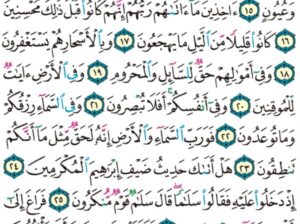 وَعُيُونٍ ١٥ ءَاخِذِينَ مَآ ءَاتَىٰهُمْ رَبُّهُمْ إِنَّهُمْ كَانُوا۟ قَبْلَ ذَٰلِكَ مُحْسِنِينَ
١٦ كَانُوا۟ قَلِيلًا مِّنَ ٱلَّيْلِ مَا يَهْجَعُونَ ١٧ وَبِٱلْأَسْحَارِ هُمْ يَسْتَغْفِرُونَ
١٨ وَفِىٓ أَمْوَٰلِهِمْ حَقٌّ لِّلسَّآئِلِ وَٱلْمَحْرُومِ ١٩ وَفِى ٱلْأَرْضِ ءَايَٰتٌ
لِّلْمُوقِنِينَ ٢٠ وَفِىٓ أَنفُسِكُمْ أَفَلَا تُبْصِرُونَ ٢١ وَفِى ٱلسَّمَآءِ رِزْقُكُمْ
وَمَا تُوعَدُونَ ٢٢ فَوَرَبِّ ٱلسَّمَآءِ وَٱلْأَرْضِ إِنَّهُۥ لَحَقٌّ مِّثْلَ مَآ أَنَّكُمْ
تَنطِقُونَ ٢٣ هَلْ أَتَىٰكَ حَدِيثُ ضَيْفِ إِبْرَٰهِيمَ ٱلْمُكْرَمِينَ ٢٤
إِذْ دَخَلُوا۟ عَلَيْهِ فَقَالُوا۟ سَلَٰمًا قَالَ سَلَٰمٌ قَوْمٌ مُّنكَرُونَ ٢٥ فَرَاغَ إِلَىٰٓ